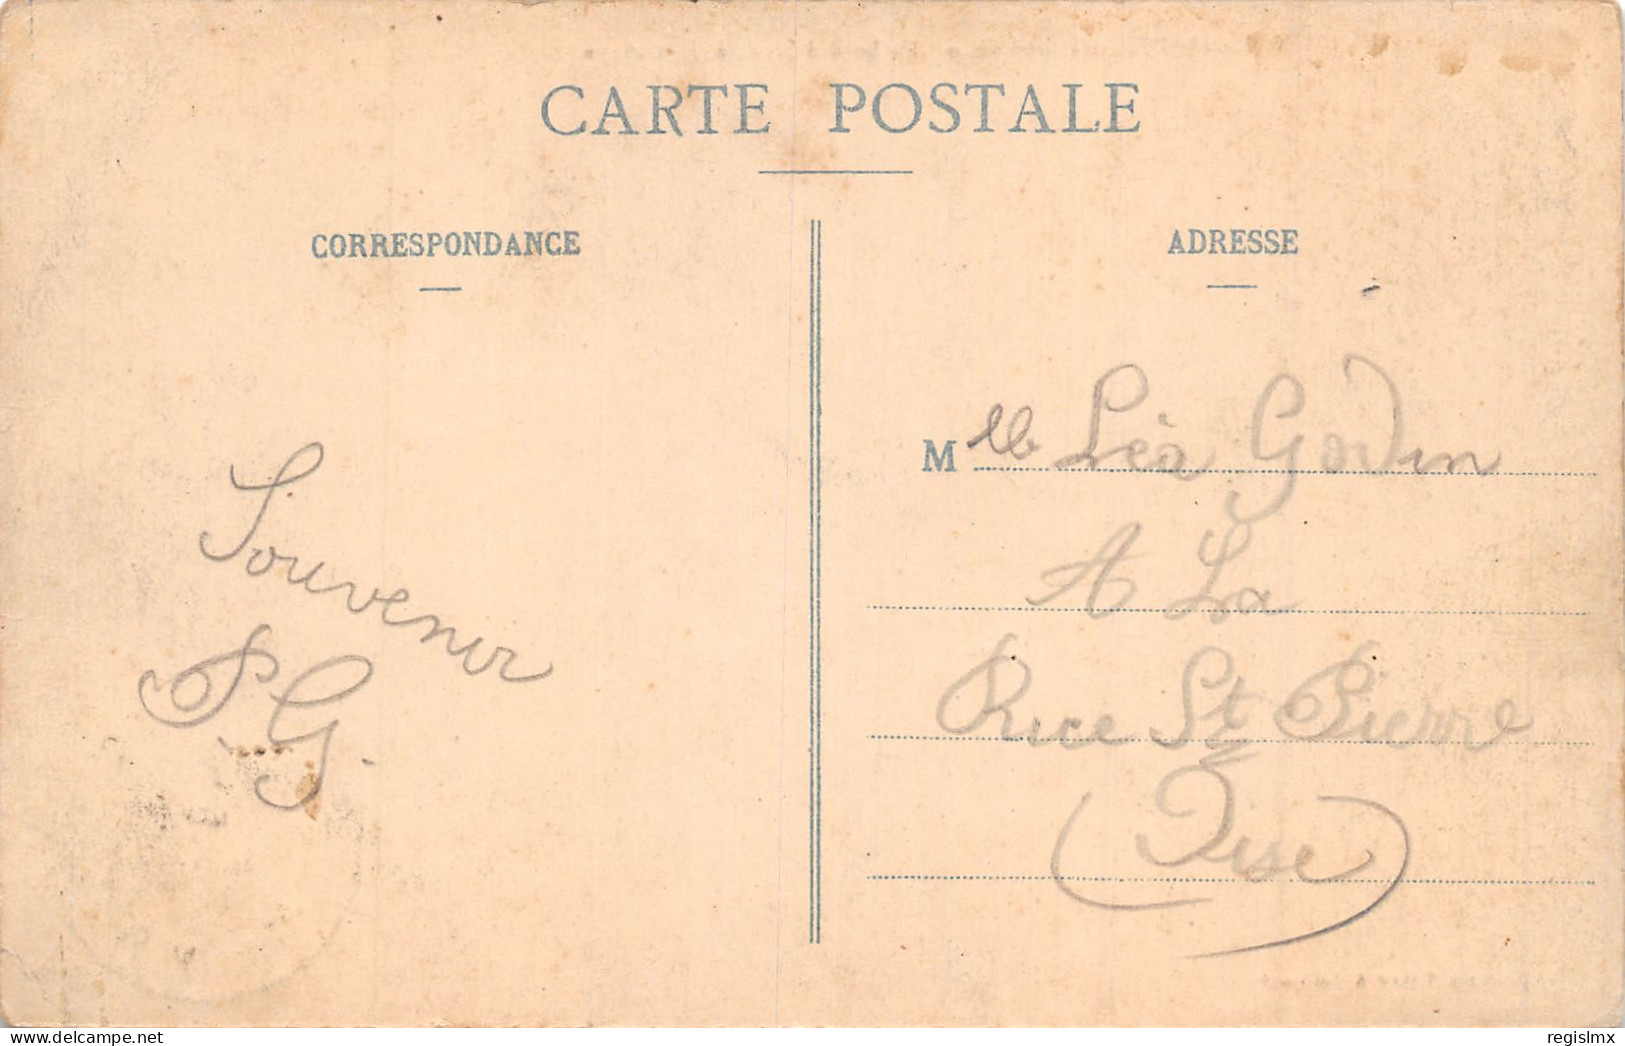 CARTE POSTALE
CORRESPONDANCE
ADRESSE
Souvenir
P. G.
Mlle Léa Godin
A La
Rue St Pierre
(Oise)
regislmx